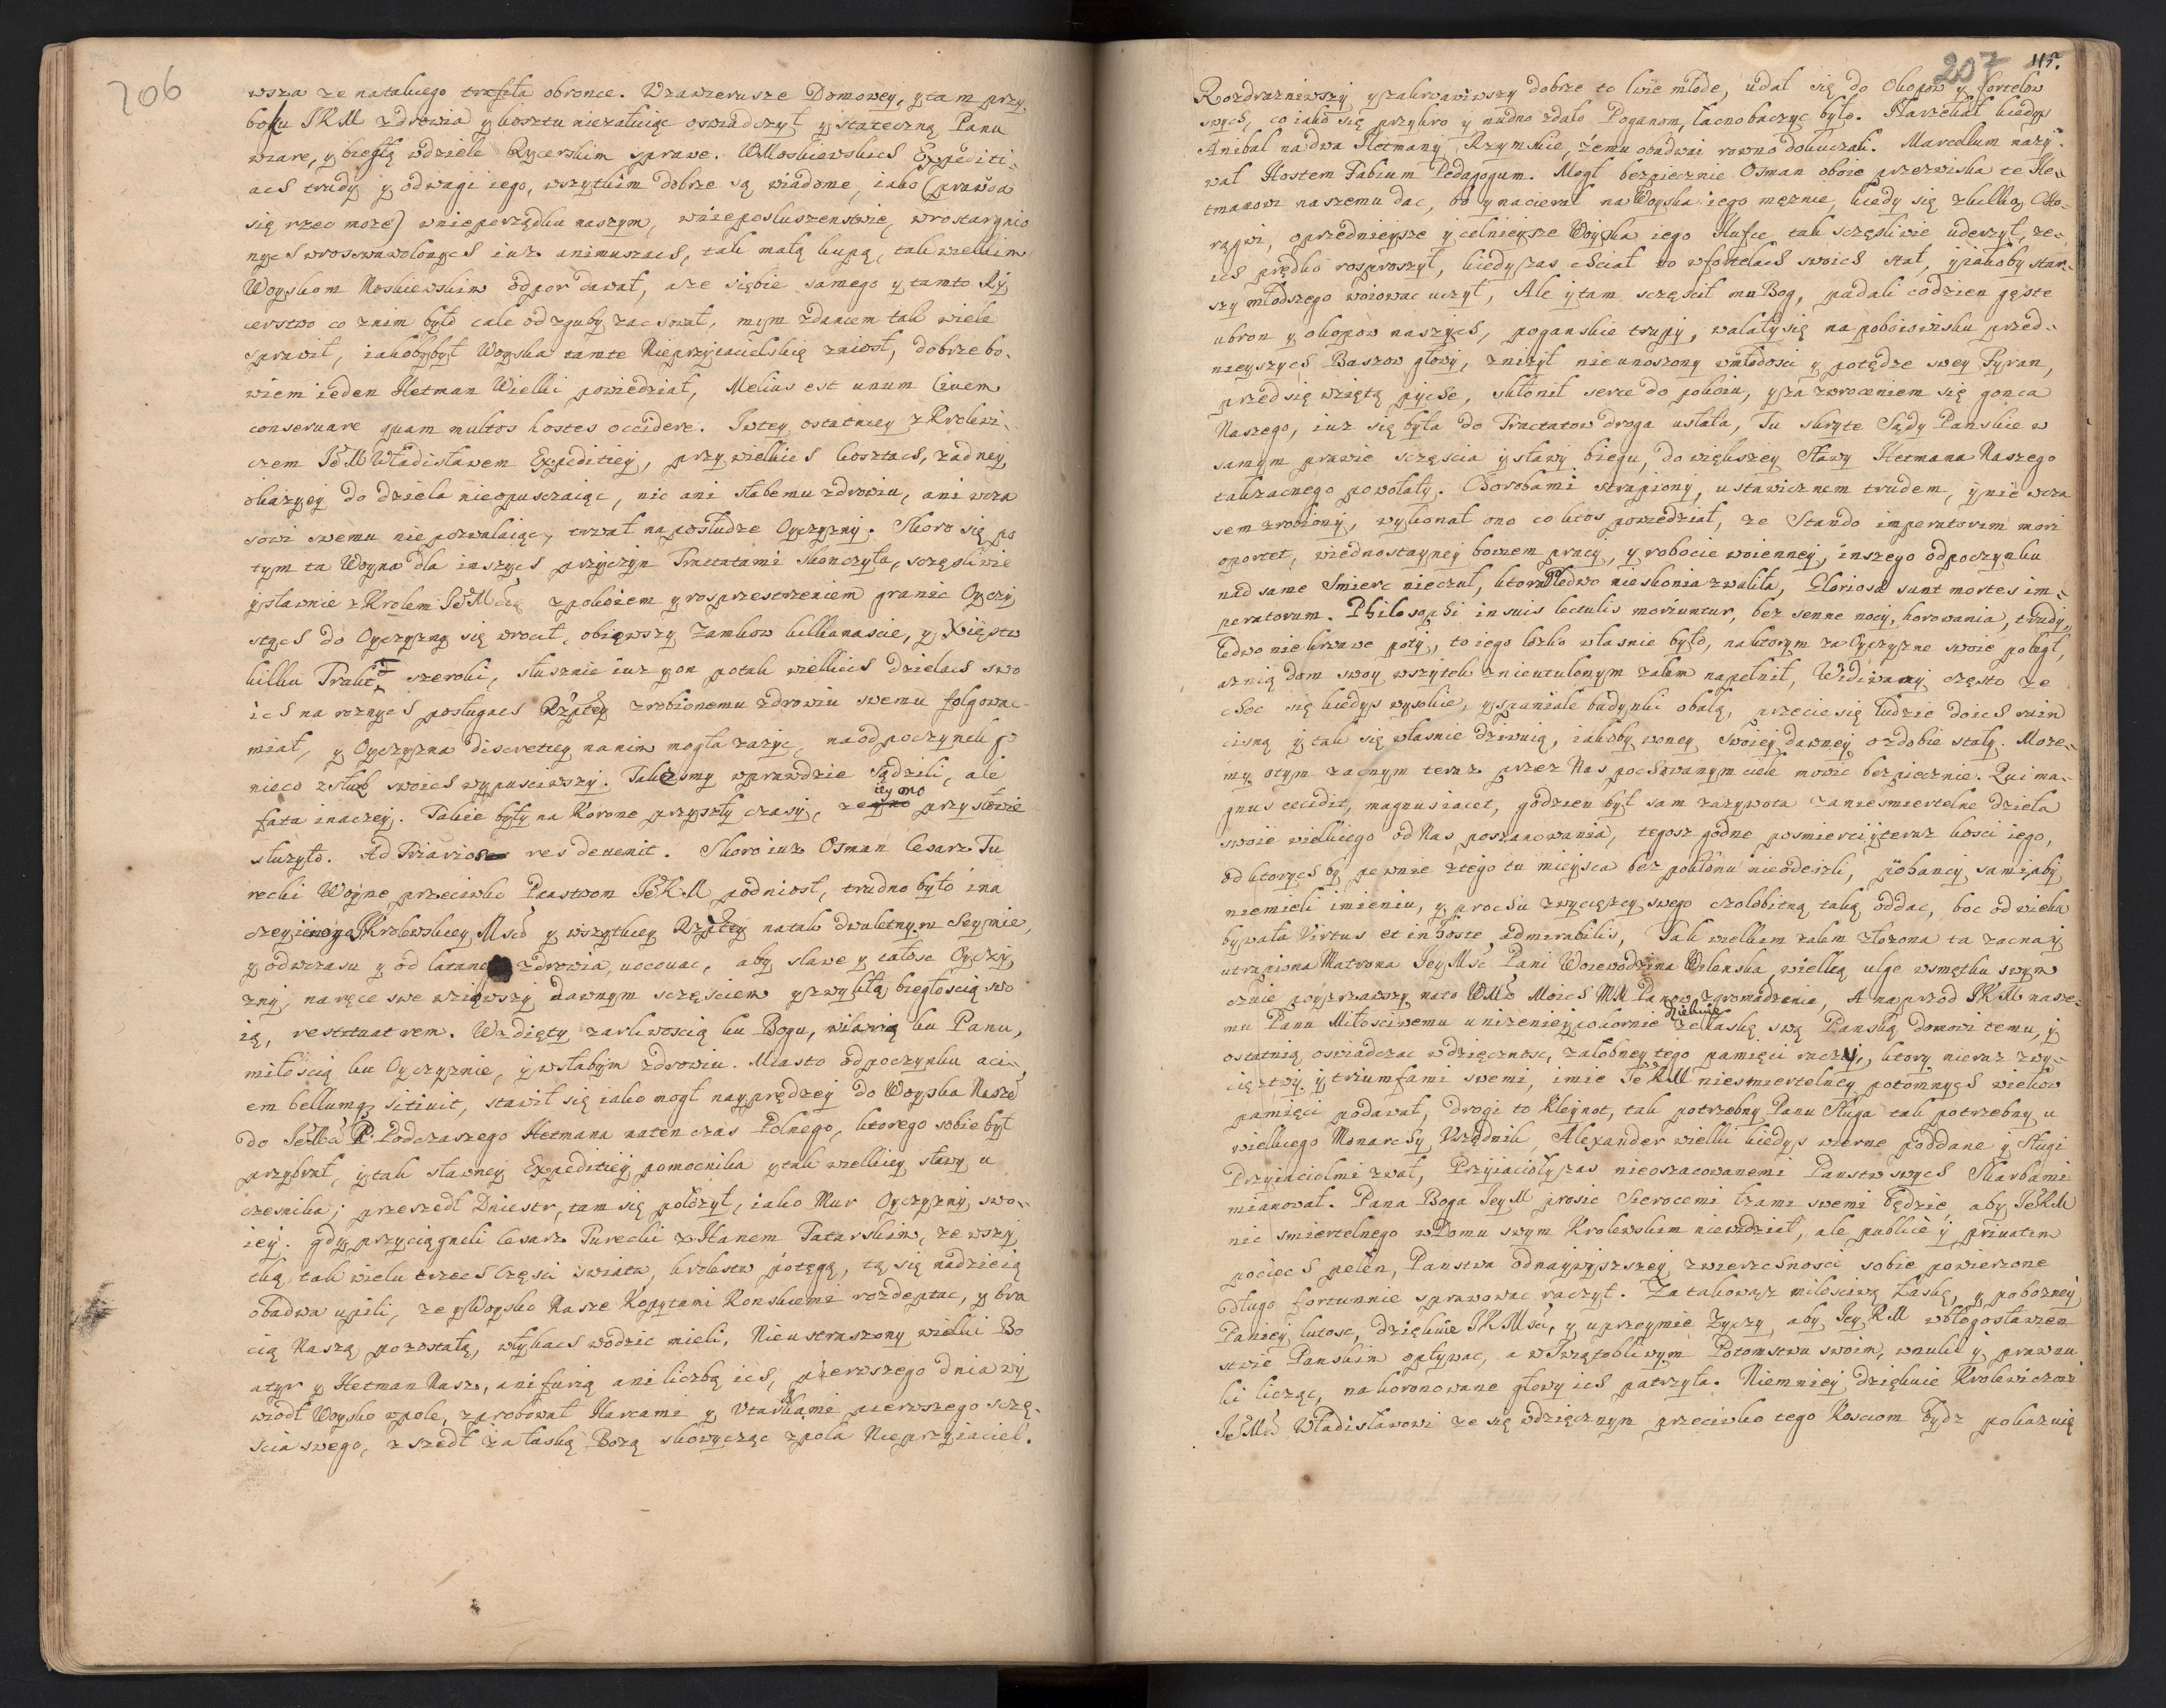 206
wsza ze natakiego trafiła obronce. Wzawierusze Domowey, y tam przy
boku JKM zdrowia y kosztu nieżałuiąc oswiadczył y stateczną Panu
wiare, y biegłą wdziele Rycerskim sprawe. WMoskiewskich Expediti-
ach trudy y odwagi iego, wszytkim dobrze są wiadome, iako (prawda
się rzec może) wnieporządku naszym, wnieposłuszenstwie, wrostargnio
nych wroswawolonych iuz animuszach, tak małą kupą, tak wielkim
Woyskom Moskiewskim odpor dawał, aze siebie samego y tamto Ry
cerstwo co znim było cale od zguby zachował, mym zdaniem tak wiele
sprawił, iakobybył Woyska tamte Nieprzyiacielskię zniosł, dobrze bo-
wiem ieden Hetman Wielki powiedział, Melius est unum Ciuem
conseruare quam multos hostes occidere. Jwtey ostatniey z Krolewi-
czem JeM Władisławem Expeditiey, przy wielkich kosztach, zadney
okazyey do dzieła nieopusczaiąc, nic ani słabemu zdrowiu, ani wcza
sowi swemu niepozwalaiąc, trwał na posłudze Oyczyzny. Skoro się po
tym ta Woyna dla inszych przyczyn Tractatami skonczyła, sczęsliwie
y sławnie z Krolem JeM zpokoiem y rosprzestrzeniem granic Oyczy
stych do Oyczyzny się wrocił, obiąwszy Zamkow kilkanascie, y Xięstw
kilku Trakt szeroki, słusznie iuz y on potak wielkich dzielach swo
ich na roznych posługach Rzptey zrobionemu zdrowiu swemu folgowac
miał, y Oyczyzna discretiey nanim mogła zażyc, na odpoczynek go
nieco zsłuzb swoich wypusciwszy. Takesmy wprawdzie sądzili, ale
fata inaczey. Takie były na Korone przyszły czasy, ze iey ono przysłowie
słuzyło. Ad Triarios res deuenit. Skoro iuz Osman Cesarz Tu
recki Woyne przeciwko Panstwom JeKM podniosł, trudno było ina
czey iedno Krolewskiey Msci y wszytkiey Rzptey natak dwuletnym Seymie,
y odwczasu y od latan zdrowia, uocouac, aby sławe y całosc Oyczy
zny, na ręce swe wziąwszy dawnym sczęsciem y zwykłą biegłoscią swo
ią, restituat rem. Wzdięty zarliwoscią ku Bogu, wiarą ku Panu,
miłoscią ku Oyczyznie, y wsłabym zdrowiu. Miasto odpoczynku aci-
em bellumq sitiuit, stawił się iako mogł nayprędzey do Woyska Nasze
do JeMci P. Podczaszego Hetmana naten czas Polnego, ktorego sobie był
przybrał, y tak sławney Expeditiey pomocnika y tak wielkiey sławy u
czesnika; przeszedł Dniestr, tam się położył, iako Mur Oyczyzny swo-
iey. gdy przyciągneli Cesarz Turecki z Hanem Tatarskim, ze wszy
tką tak wielu trzech Częsci swiata, krolestw potęgą, tą się nadzieią
obadwa upili, ze y Woysko Nasze Kopytami Konskiemi rozdeptac, y bra
cią Naszą pozostałą, włykach wodzic mieli, Nieustraszony wielki Bo
atyr y Hetman Nasz, ani furią ani liczbą ich, pierwszego dnia wy
wiodł Woysko wpole, zprobował Harcami y Vtarkami pierwszego sczę-
scia swego, zszedł za łaską Bożą skowycząc zpola Nieprzyiaciel.
207 115.
Rozdrazniwszy y zakrwawiwszy dobrze to lwie młode, udał się do Okopow y fortelow
swych, co iako się przykro y nudno zdało Poganom, łacno baczyc było. Narzekał kiedys
Anibal na dwa Hetmany Rzymskie, żemu obadwai rowno dokuczali. Marcellum nazy-
wał Hostem Fabium Pedagogum. Mogł bezpiecznie Osman oboie przezwiska te He-
tmanowi naszemu dac, bo y nacierał na Woyska iego mężnie, kiedy się zkilką Cho-
rągwi, oprzednieysze y celnieysze Woyska iego Hufce tak sczęsliwie uderzył, ze
ich prędko rosproszył, kiedy zas chciał to wfortelach swoich stał, y iakoby star-
szy młodszego woiowac uczył, Ale y tam sczęscił mu Bog, padali codzien gęste
ubron y okopow naszych, poganskie trupy, walały się na poboiowisku przed-
nieyszych Baszow głowy, znizył nieunoszony wmłodosci y potędze swey Tyran,
przedsię wziętą pyche, skłonił serce do pokoiu, y za zwroceniem się gonca
Naszego, iuz się była do Tractatow droga usłała, Tu skryte Sądy Panskie w
samym prawie sczęscia y sławy biegu, do większey sławy Hetmana Naszego
takzacnego powołały. Chorobami strapiony, ustawicznem trudem, y nie wcza
sem zrobiony, wykonał ono co ktos powiedział, ze Stando imperatorem mori
oportet, wiednostayney bowiem pracy, y robocie woienney, inszego odpoczynku
nad same Smierc nieczuł, ktora go ledwo nieskonia zwaliła, Gloriosa sunt mortes im-
peratorum. Philosophi in suis lectulis moriuntur, bez senne nocy, horowania, trudy,
ledwo niekrwawe poty, to iego łożko własnie było, naktorym za Oyczyzne swoie poległ,
asnią dom swoy wszytek znieutulonym żalem napełnił, Widiwamy często ze
choc się kiedys wysokie, y spaniałe budynki obalą, przecie się ludzie doich ruin
cisną y tak się własnie dziwuią, iakoby woney swoiey dawney ozdobie stały. Może-
my otym zacnym teraz przez Nas pochowanym ciele mowic bezpiecznie. Qui ma-
gnus cecidit, magnus iacet, godzien był sam zazywota zaniesmiertelne dzieła
swoie wielkiego od Nas poszanowania, tegosz godne posmierci y teraz kosci iego,
od ktorych by pewnie ztego tu mieysca bez pokłonu nieodeszli, pohancy sami, aby
niemieli imieniu, y prochu zwyciężcy swego czołobitną taką oddac, boc od wieku
bywała Virtus et in hoste admirabilis, Tak wielkim żalem złożona ta zacna y
utrapiona Matrona JeyMsc Pani Woiewodzina Wilenska, wielką ulge wsmętku swym
czuie poyzrzawszy nato WMc Moich MM Panow zgromadzenie, A naprzod JKM nasze-
mu Panu Miłosciwemu unizenie y pokornie dziękuie ze łaską swą Panską domowi temu, y
ostatnią oswiadczac wdzięcznosc, załobney tego pamięci raczy, ktory nieraz zwy-
cięztwy y triumfami swemi, imie JeKM niesmiertelney potomnych wiekow
pamięci podawał, drogi to Kleynot, tak potrzebny Panu Sługa tak potrzebny u
wielkiego Monarchy Vrzędnik, Alexander wielki kiedys wierne poddane y Sługi
Przyiaciolmi zwał, Przyiacioły zas nieoszacowanemi Panstw swych Skarbami
mianował. Pana Boga JeyM prosic Sierocemi łzami swemi będzie, aby JeKM
nic smiertelnego wDomu swym Krolewskim niewidział, ale publice y priuatim
pociech pełen, Panstwa odnaywyzszey zwierzchnosci sobie powierzone
długo fortunnie sprawowac raczył. Za takowąz miłosciwą Łaskę, y pobozney
Paniey lutosc, dziękuie JKMsci, y uprzeymie życzy, aby JeyKM wbłogosławien
stwie Panskim opływac, a wSwiątobliwym Potomstwu swoim, wnuki y prawnu
ki licząc, nakoronowane głowy ich patrzyła. Niemniey dziękuie Krolewiczowi
JeMci Władisławowi ze się wdzięcznym przeciwko tego Kosciom bydz pokazuię